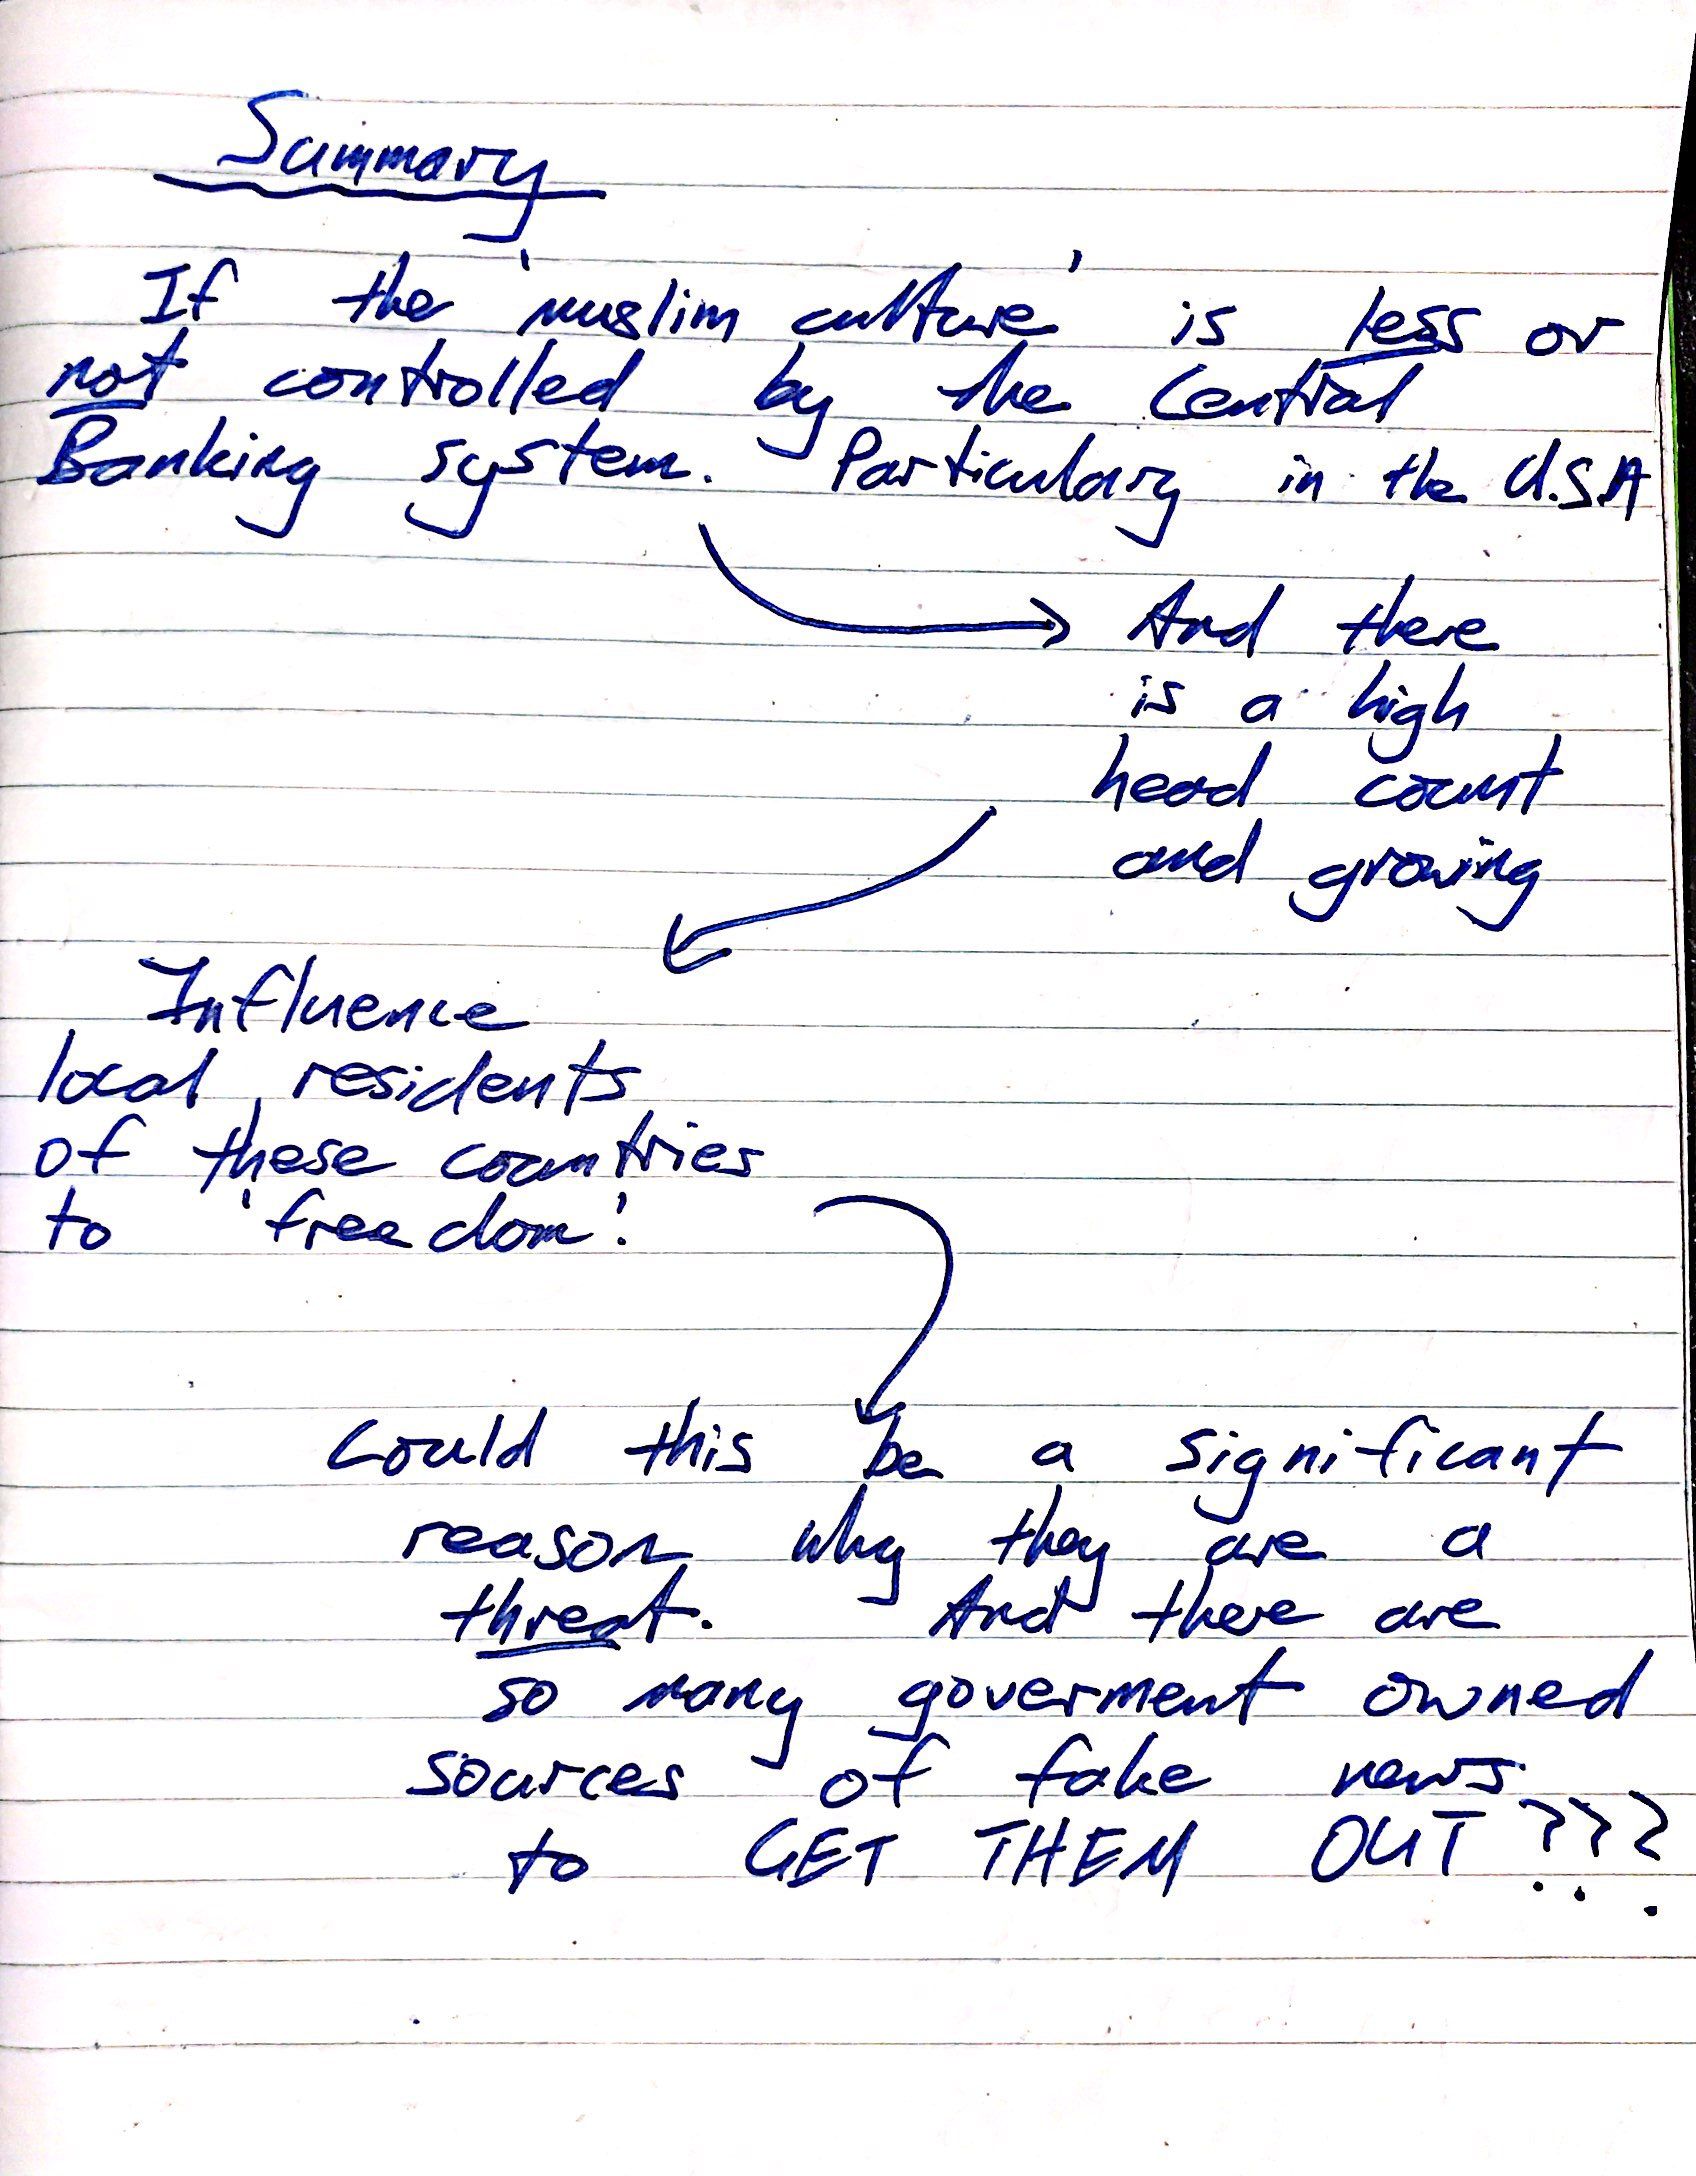 Summary
If the 'muslim culture' is less or
not controlled by the Central
Banking system. Particulary in the U.S.A
And there
is a high
head count
and growing
Influence
local residents
of these countries
to 'freedom'.
Could this be a significant
reason why they are a
threat. And there are
so many goverment owned
sources of fake news
to GET THEM OUT???